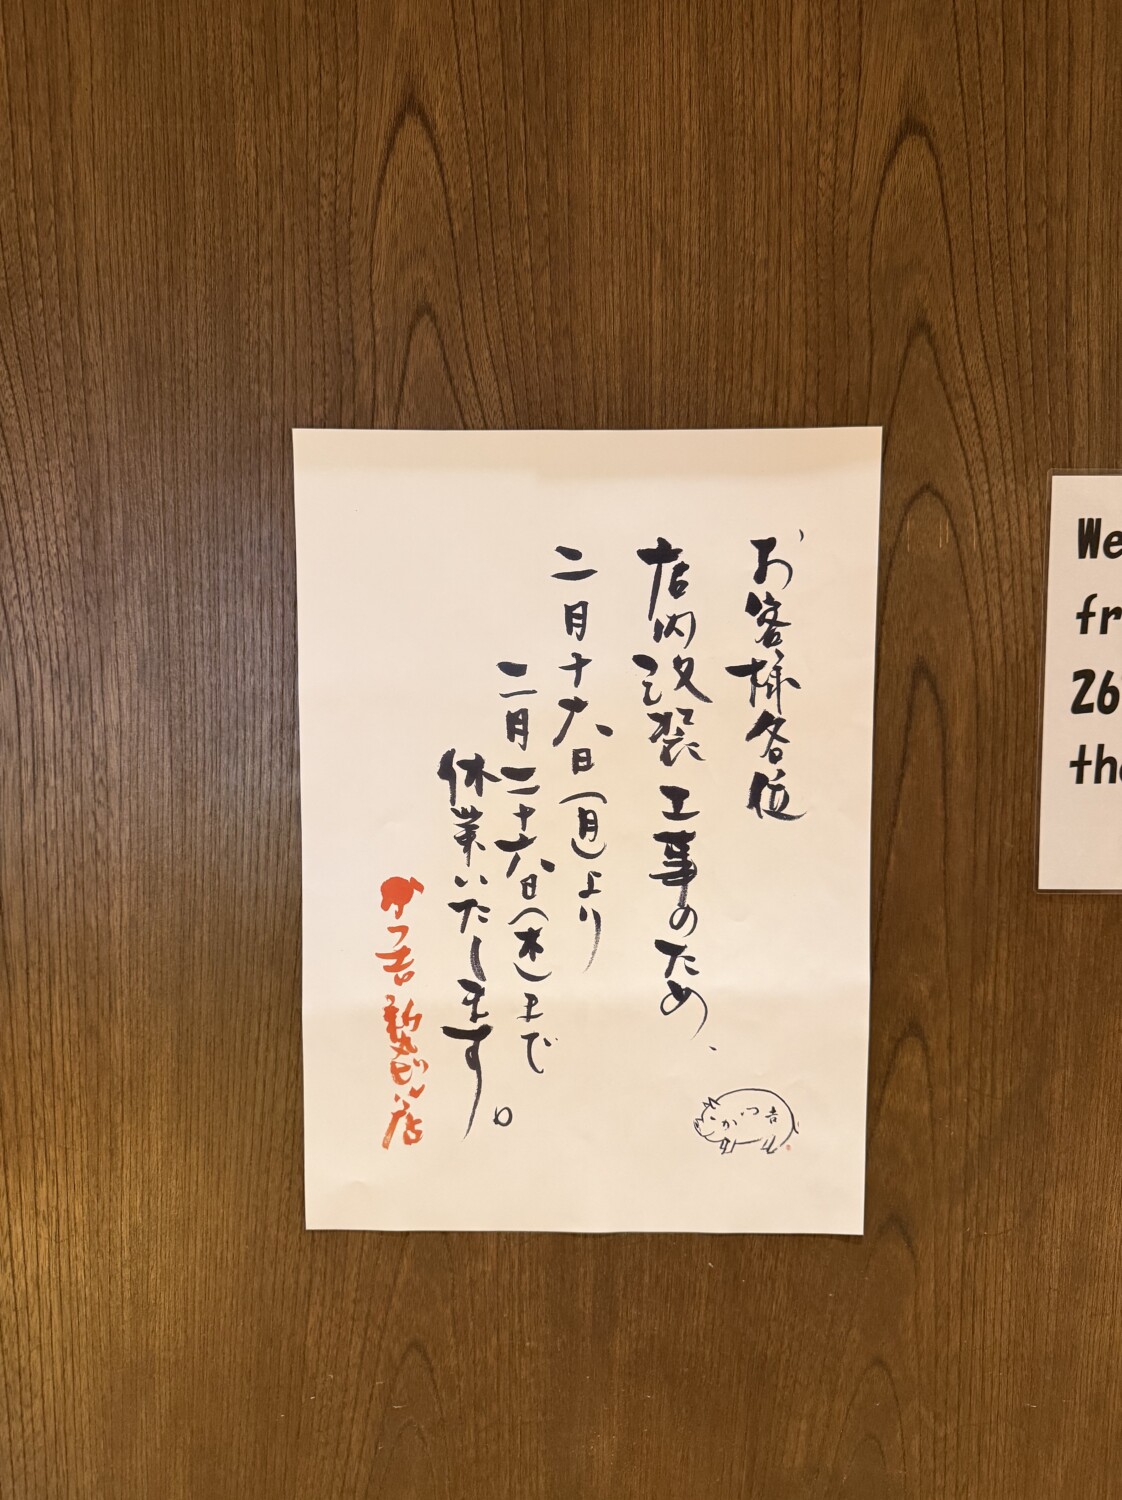 お客様各位
店内改装工事のため、
二月十六日（月）より
二月二十六日（木）まで
休業いたします。
かつ吉 新丸ビル店
かつ吉
We
fr
26
th